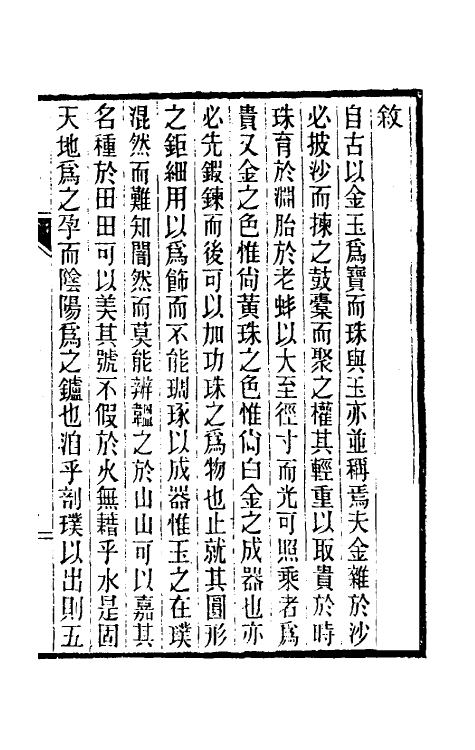 敘
自古以金玉爲寶而珠與玉亦並稱焉夫金雜於沙
必披沙而揀之鼓橐而聚之權其輕重以取貴於時
珠育於淵胎於老蚌以大至徑寸而光可照乘者爲
貴又金之色惟尙黃珠之色惟尙白金之成器也亦
必先鍜鍊而後可以加功珠之爲物也止就其圓形
之鉅細用以爲飾而不能琱琢以成器惟玉之在璞
混然而難知闇然而莫能辨韞之於山山可以嘉其
名種於田田可以美其號不假於火無藉乎水是固
天地爲之孕而陰陽爲之鑪也洎乎剖璞以出則五